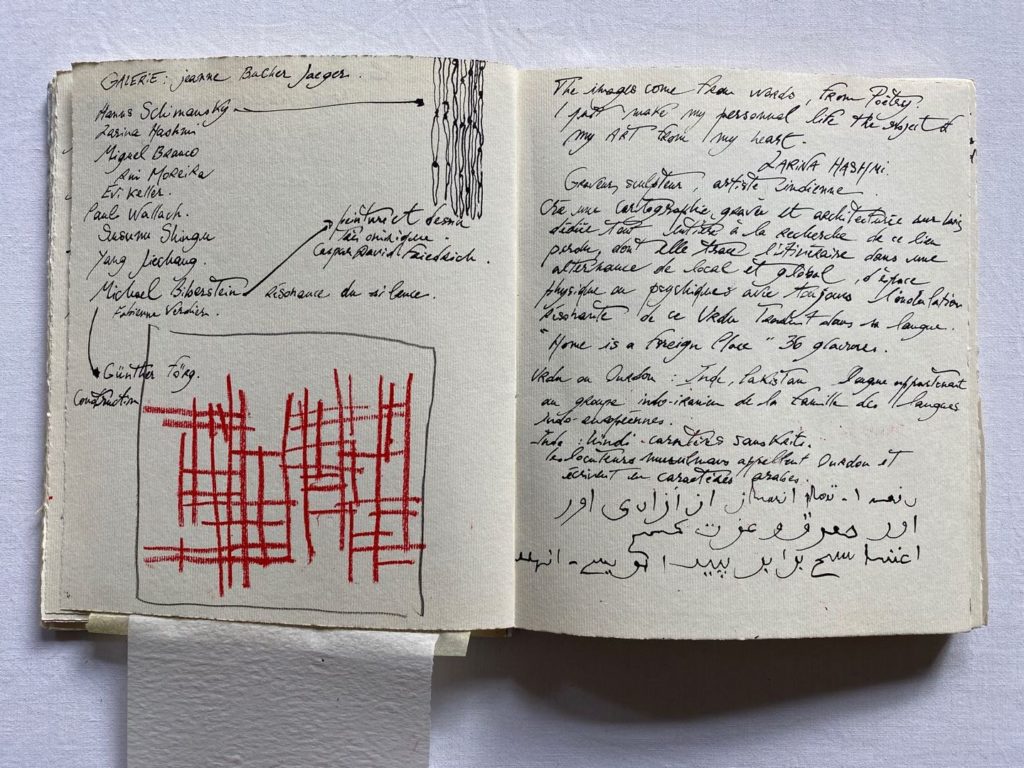 GALERIE : jeanne Bucher Jaeger.
Hanns Schimansky
Zarina Hashmi
Miguel Branco
Rui Moreira
Evi Keller.
Paul Wallach.
Susumu Shingu
Yang Jiechang.
peinture et dessin
très onirique.
Caspar David Friedrich.
Michael Biberstein
Résonance du silence.
Fabienne Verdier.
Günther Förg.
Construction
The images come from words, from Poëtry.
I just make my personnal life the subject of
my ART from my heart.
ZARINA HASHMI.
Graveur, sculpteur, artiste indienne.
Crée une cartographie, gravée et architecturée sur bois
dédiée tout entière à la recherche de ce lieu
perdu, dont elle trace l'itinéraire dans une
alternance de local et global, d'espace
physique ou psychique, avec toujours l'ondulation
résonante de ce Urdu dans sa langue.
"Home is a Foreign Place" 36 gravures.
Urdu ou Ourdou : Inde, Pakistan langue appartenant
au groupe indo-iranien de la famille des langues
indo-européennes.
Inde : hindi - caractères sanskrits.
les locuteurs musulmans appellent Ourdou et
écrivent en caractères arabes.
دفعہ ۱ - تمام انسان آزادی اور
اور حقوق و عزت کے
برابر پیدا ہوئے - انہیں